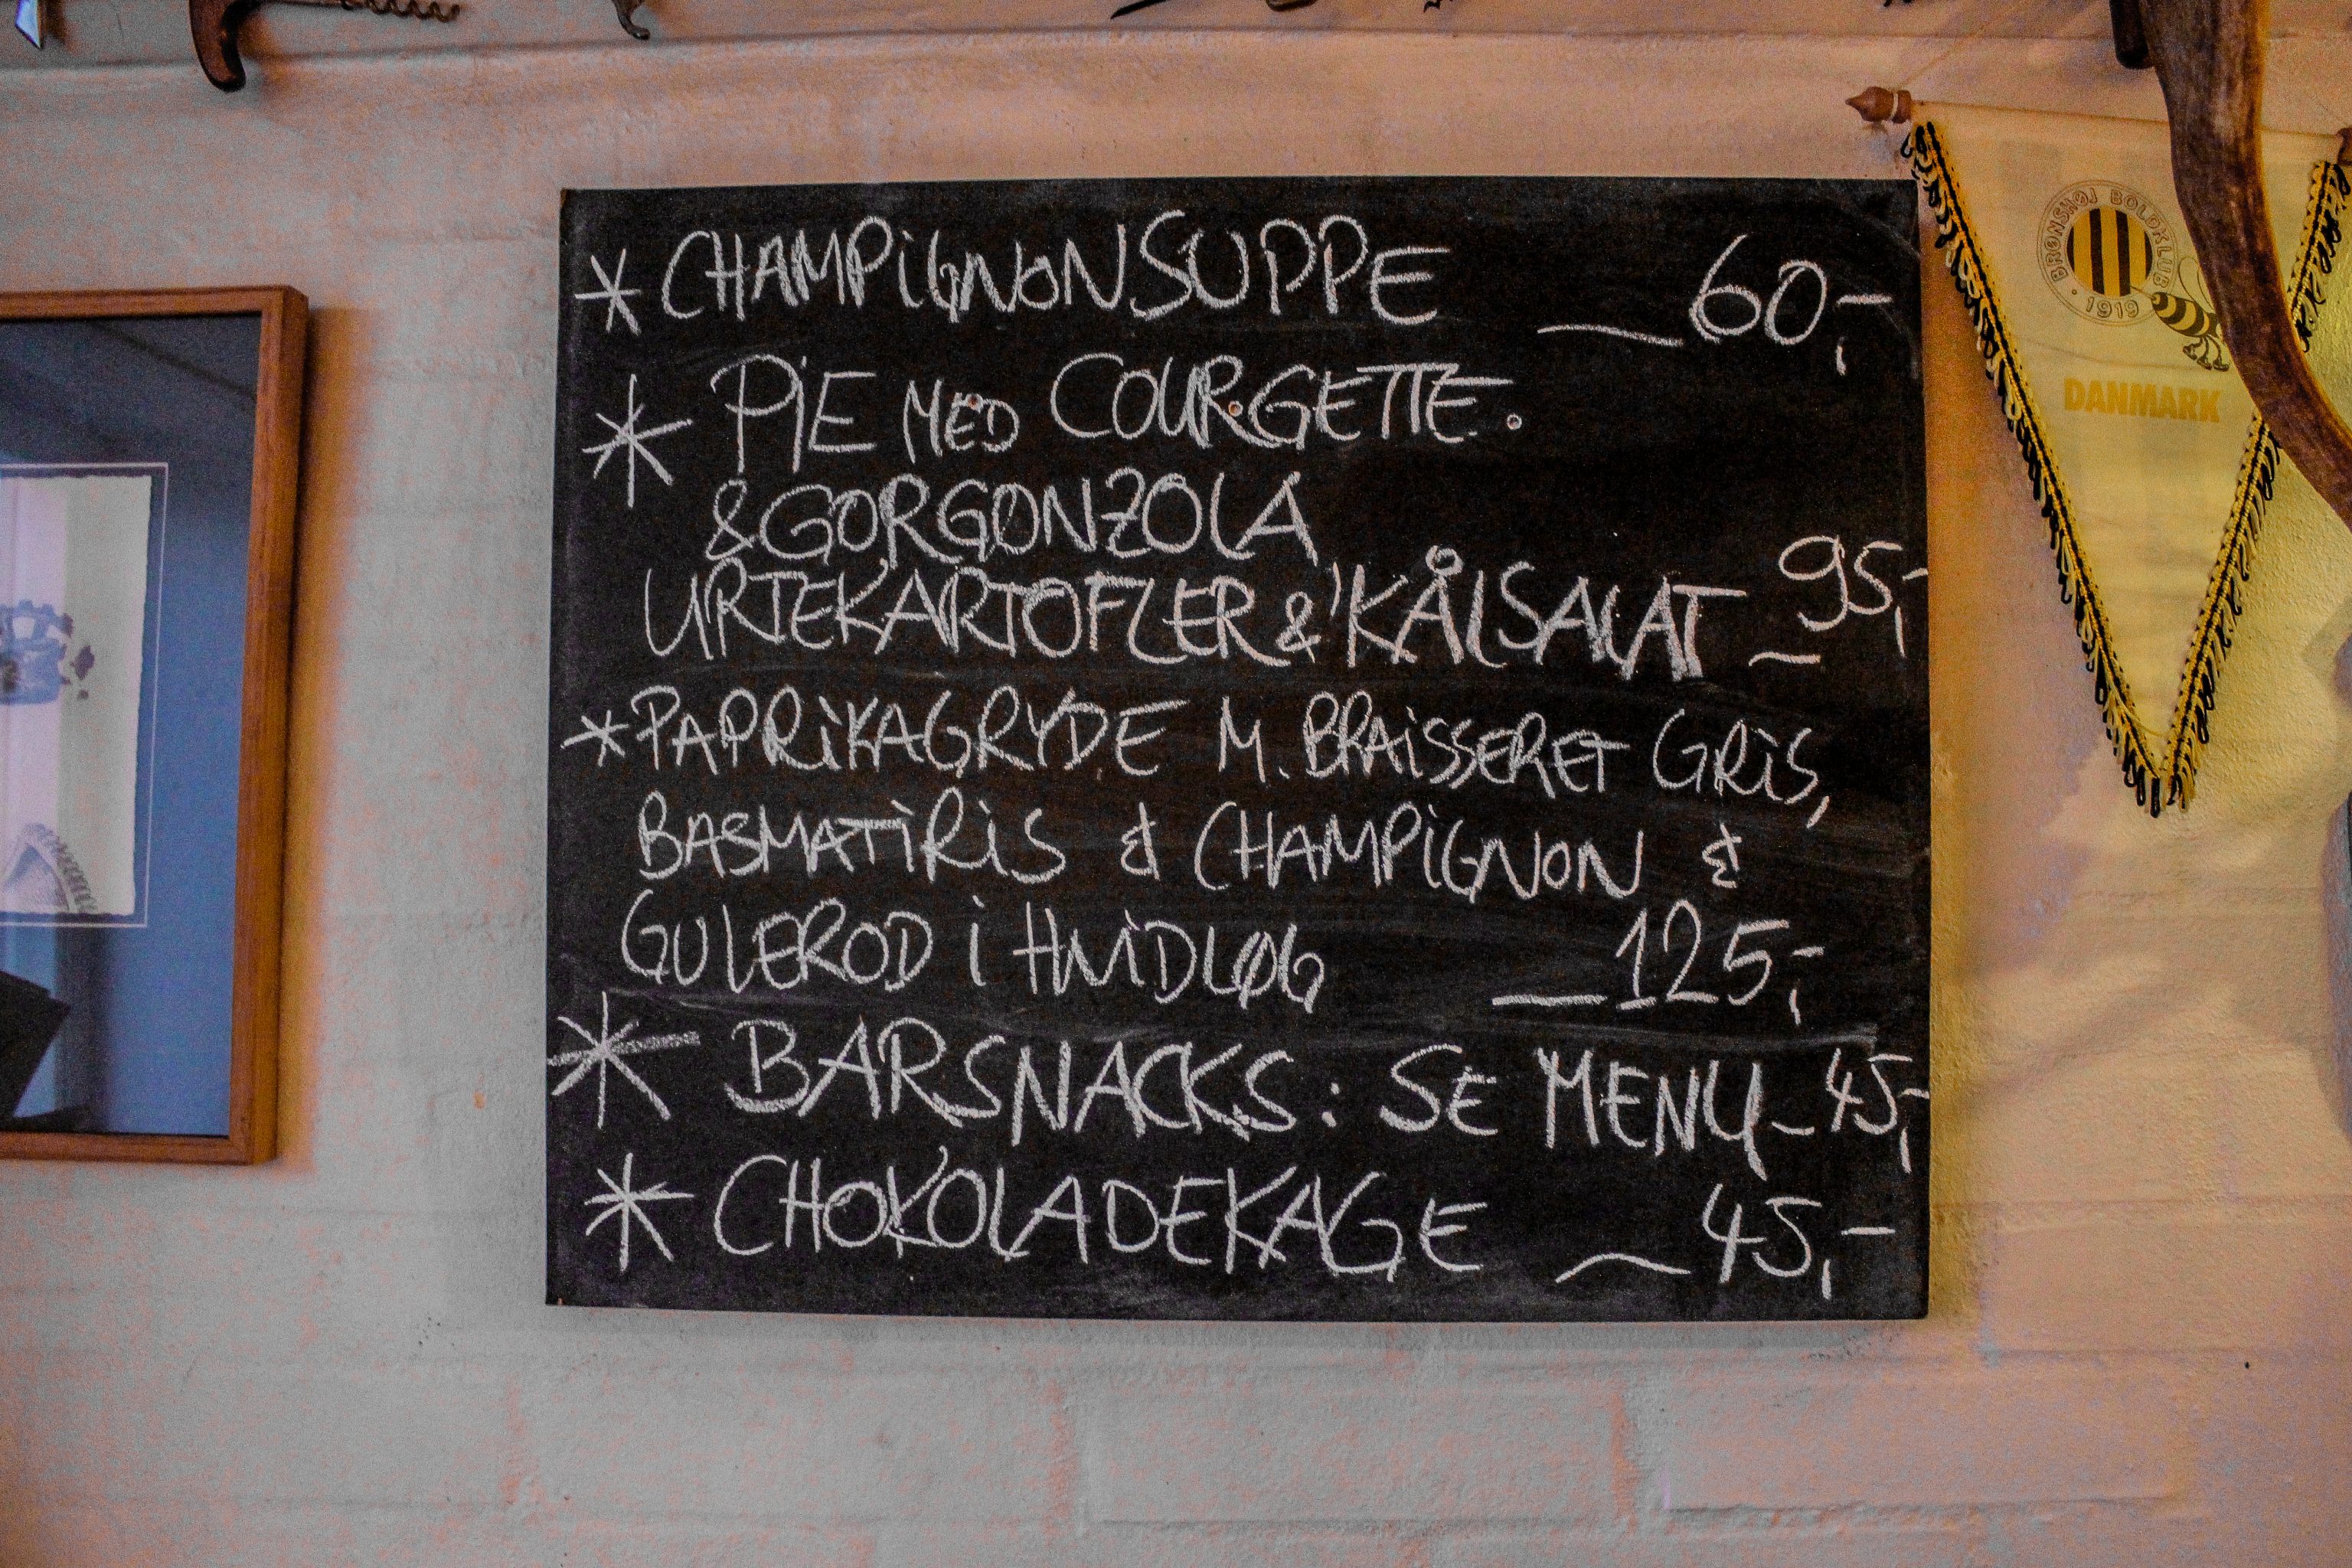 * CHAMPiGNONSUPPE __60,-
* PiE MED COURGETTE.
&GORGONZOLA
URTEKARTOFLER & KÅLSALAT _95,-
* PAPRiKAGRYDE M. BRAiSSERET GRiS,
BASMATiRiS & CHAMPiGNON &
GULEROD i HViDLØG __125,-
* BARSNACKS: SE MENU_45,-
* CHOKOLADEKAGE __45,-
BRØNSHØJ BOLDKLUB
· 1919 ·
DANMARK